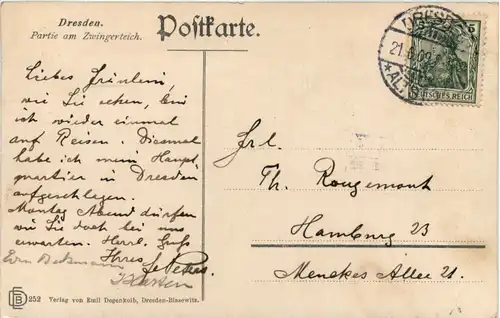 Dresden.
Partie am Zwingerteich.
Postkarte.
DRESDEN
21.6.09
*ALTST
5
DEUTSCHES REICH
Liebes Fräulein,
wie Sie sehen, bin
ich wieder einmal
auf Reisen. Diesmal
habe ich mein Haupt
quartier in Dresden
aufgeschlagen.
Montag Abend dürfen
wir Sie doch bei uns
erwarten. Herzl. Gruß
Ihres
Frl.
Th. Rougemont
Hamburg 23
Menckes Allee 21.
252 Verlag von Emil Degenkolb, Dresden-Blasewitz.